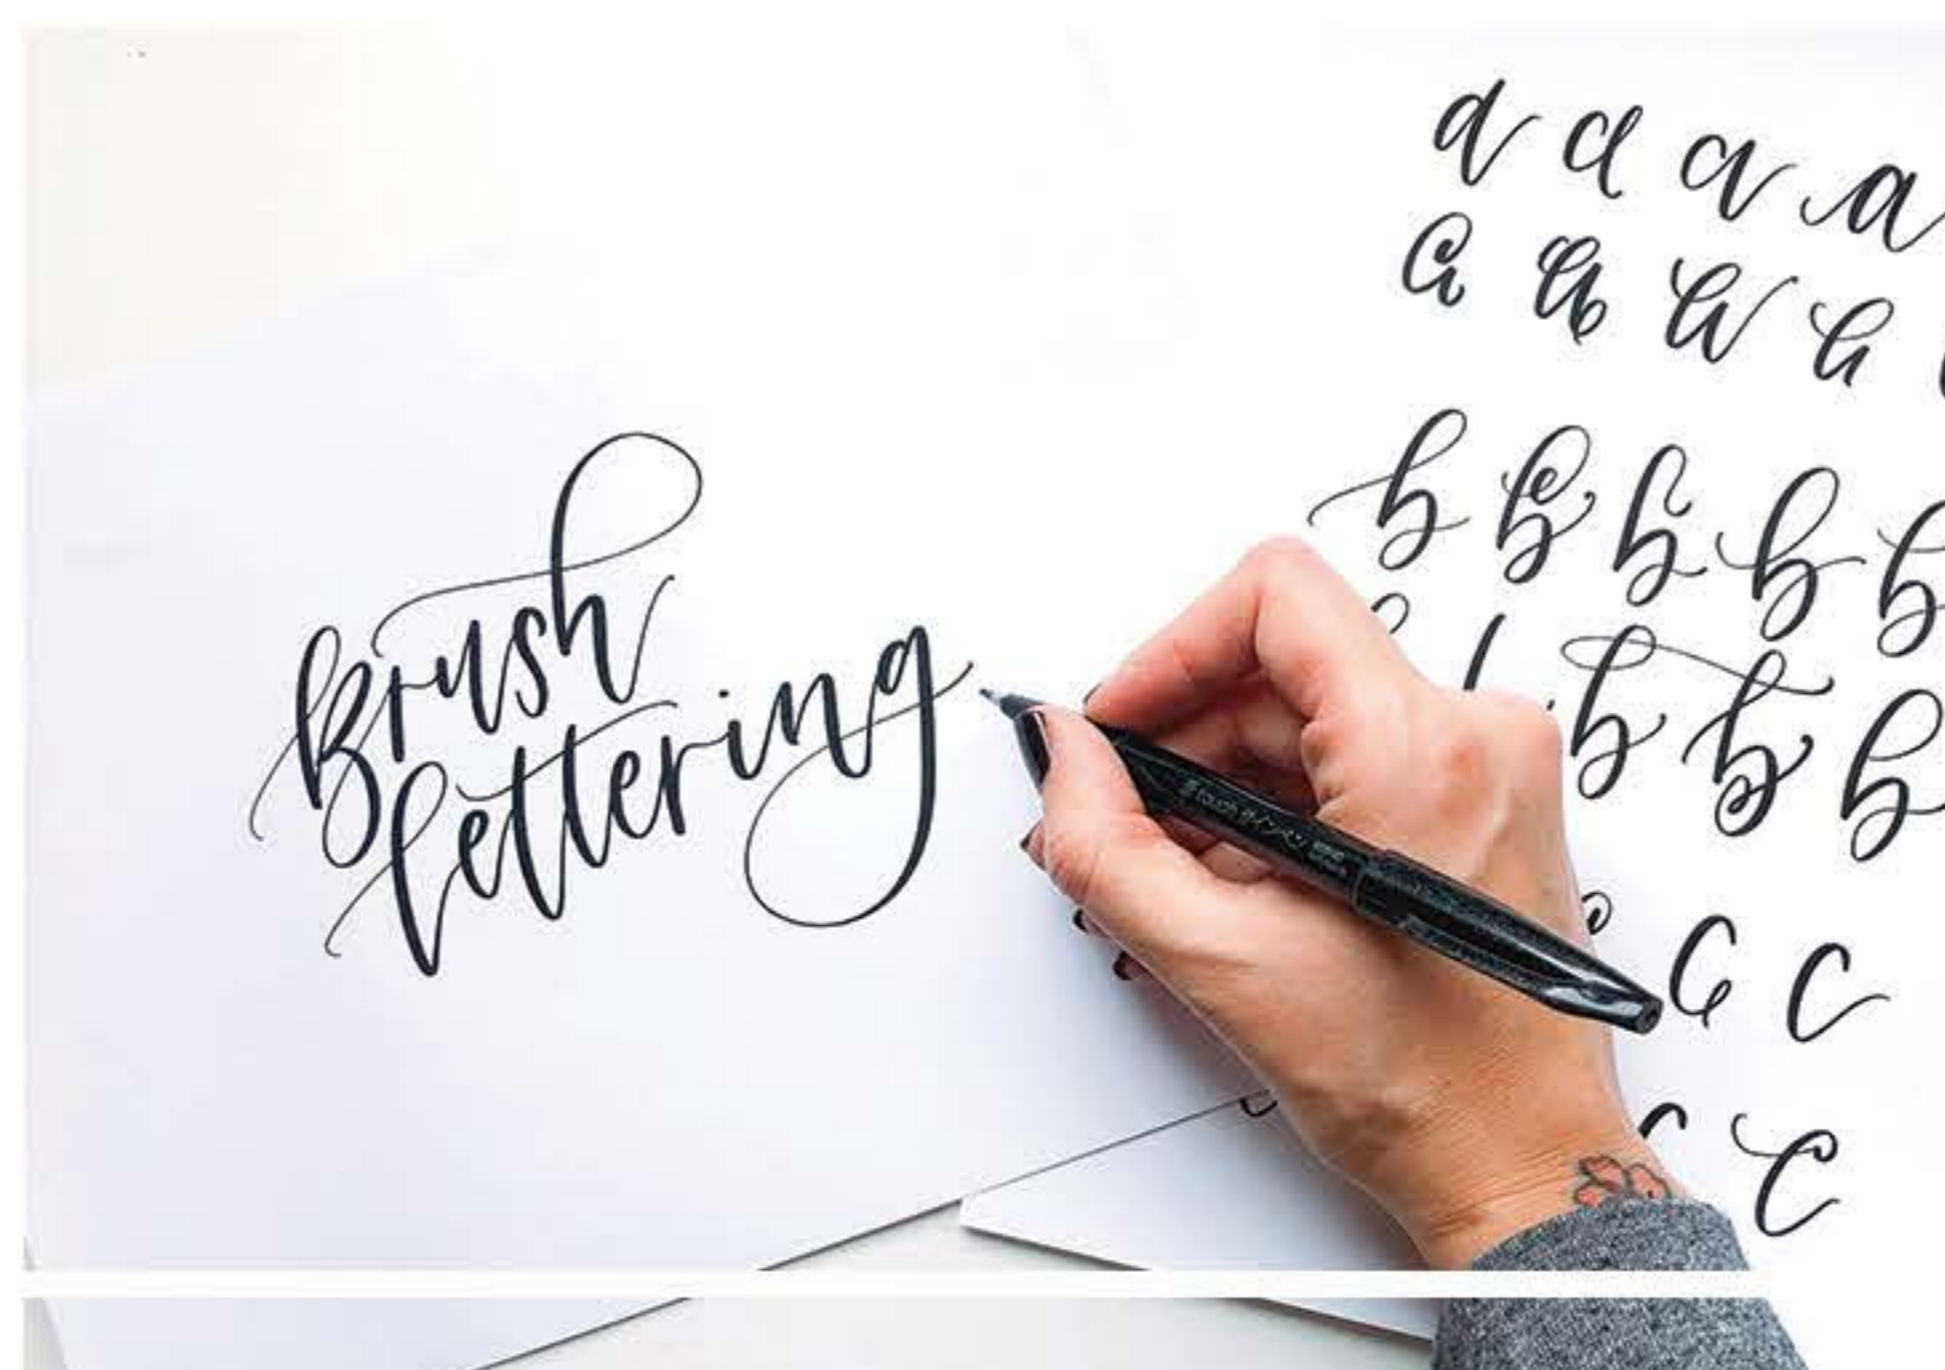 Brush
lettering
a a a a
a a a a
b b b b b
b b b
c c
c c
touch サインペン